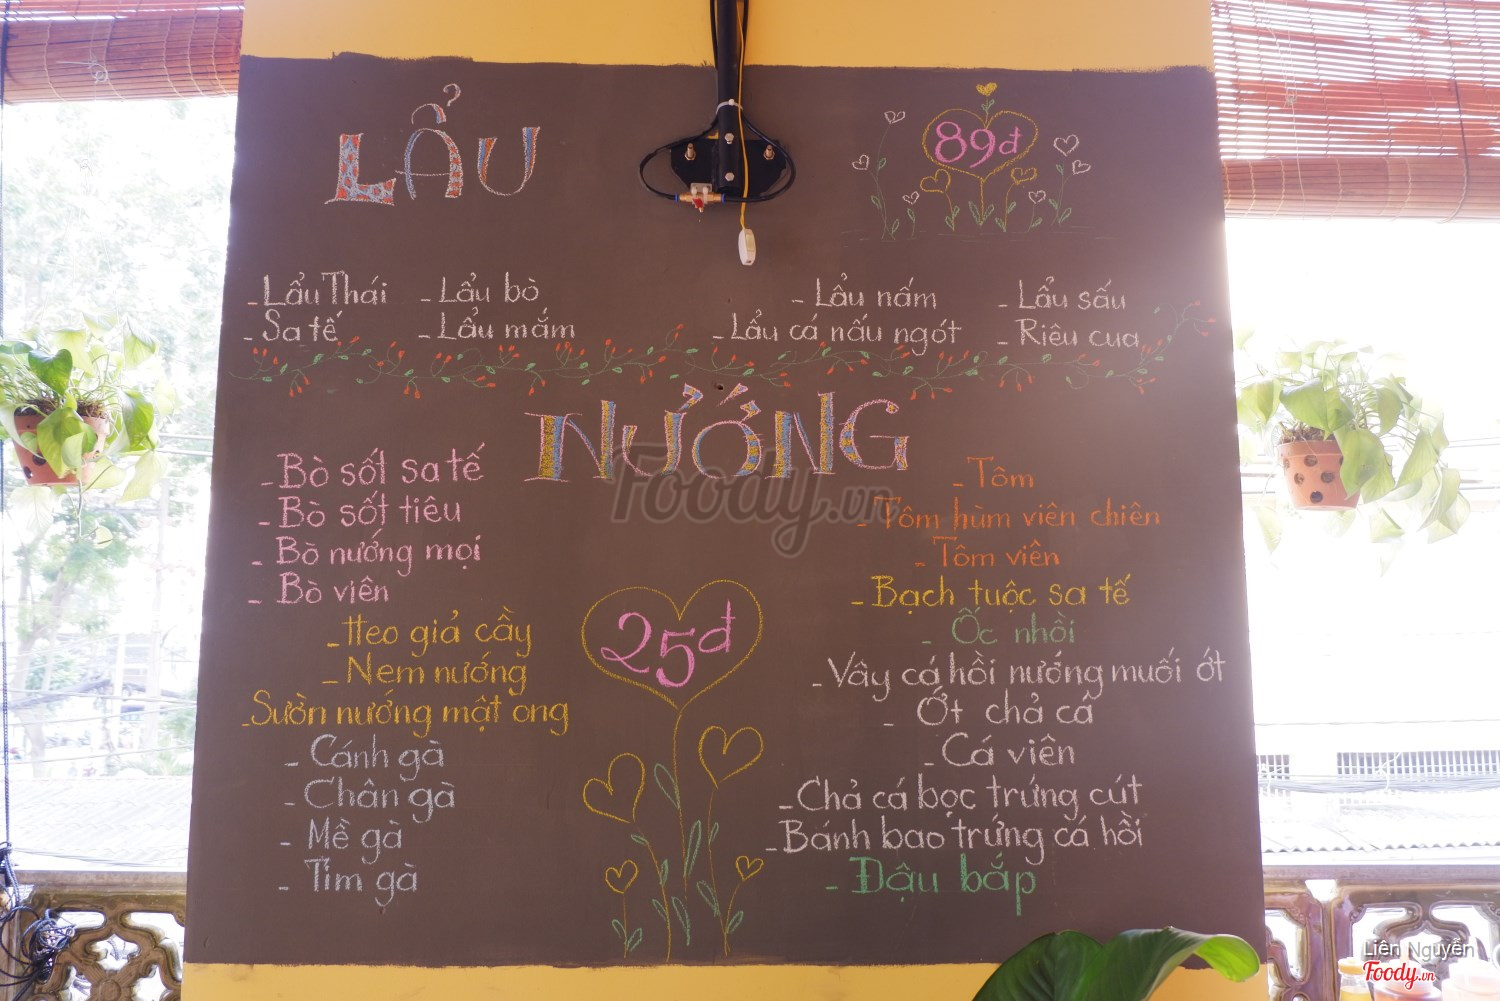 LẨU
89đ
- Lẩu Thái
- Lẩu bò
- Lẩu nấm
- Lẩu sấu
- Sa tế
- Lẩu mắm
- Lẩu cá nấu ngót
- Riêu cua
NƯỚNG
- Bò sốt sa tế
- Bò sốt tiêu
- Bò nướng mọi
- Bò viên
- Heo giả cầy
- Nem nướng
- Sườn nướng mật ong
- Cánh gà
- Chân gà
- Mề gà
- Tim gà
25đ
- Tôm
- Tôm hùm viên chiên
- Tôm viên
- Bạch tuộc sa tế
- Ốc nhồi
- Vây cá hồi nướng muối ớt
- Ớt chả cá
- Cá viên
- Chả cá bọc trứng cút
- Bánh bao trứng cá hồi
- Đậu bắp
Foody.vn
Liên Nguyễn
Foody.vn